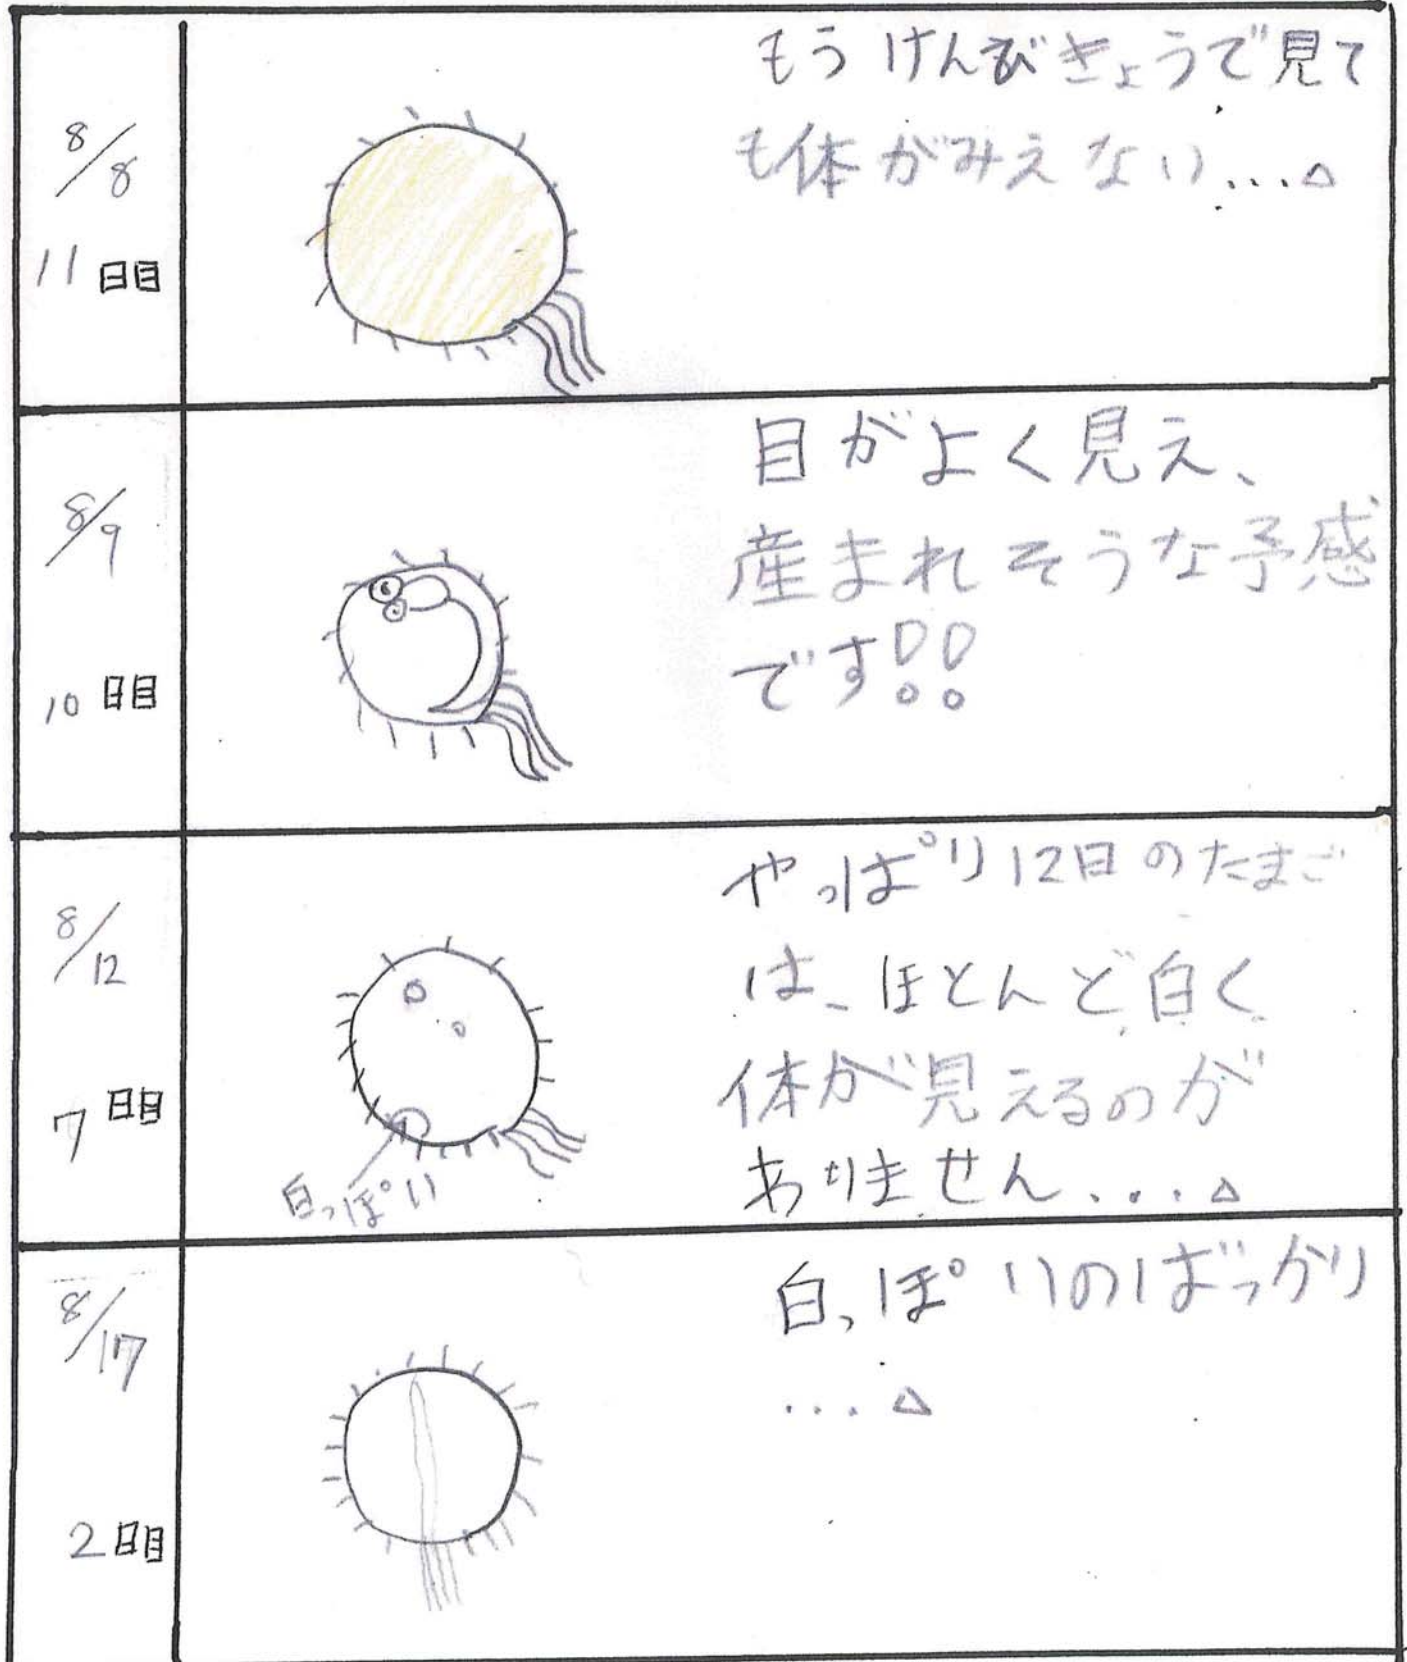 8/8
11日目
もうけんびきょうで見て
も体がみえない...△
8/9
10日目
目がよく見え、
産まれそうな予感
です!!
8/12
7日目
白っぽい
やっぱり12日のたまご
は、ほとんど白く
体が見えるのが
ありません...△
8/17
2日目
白っぽいのばっかり
...△